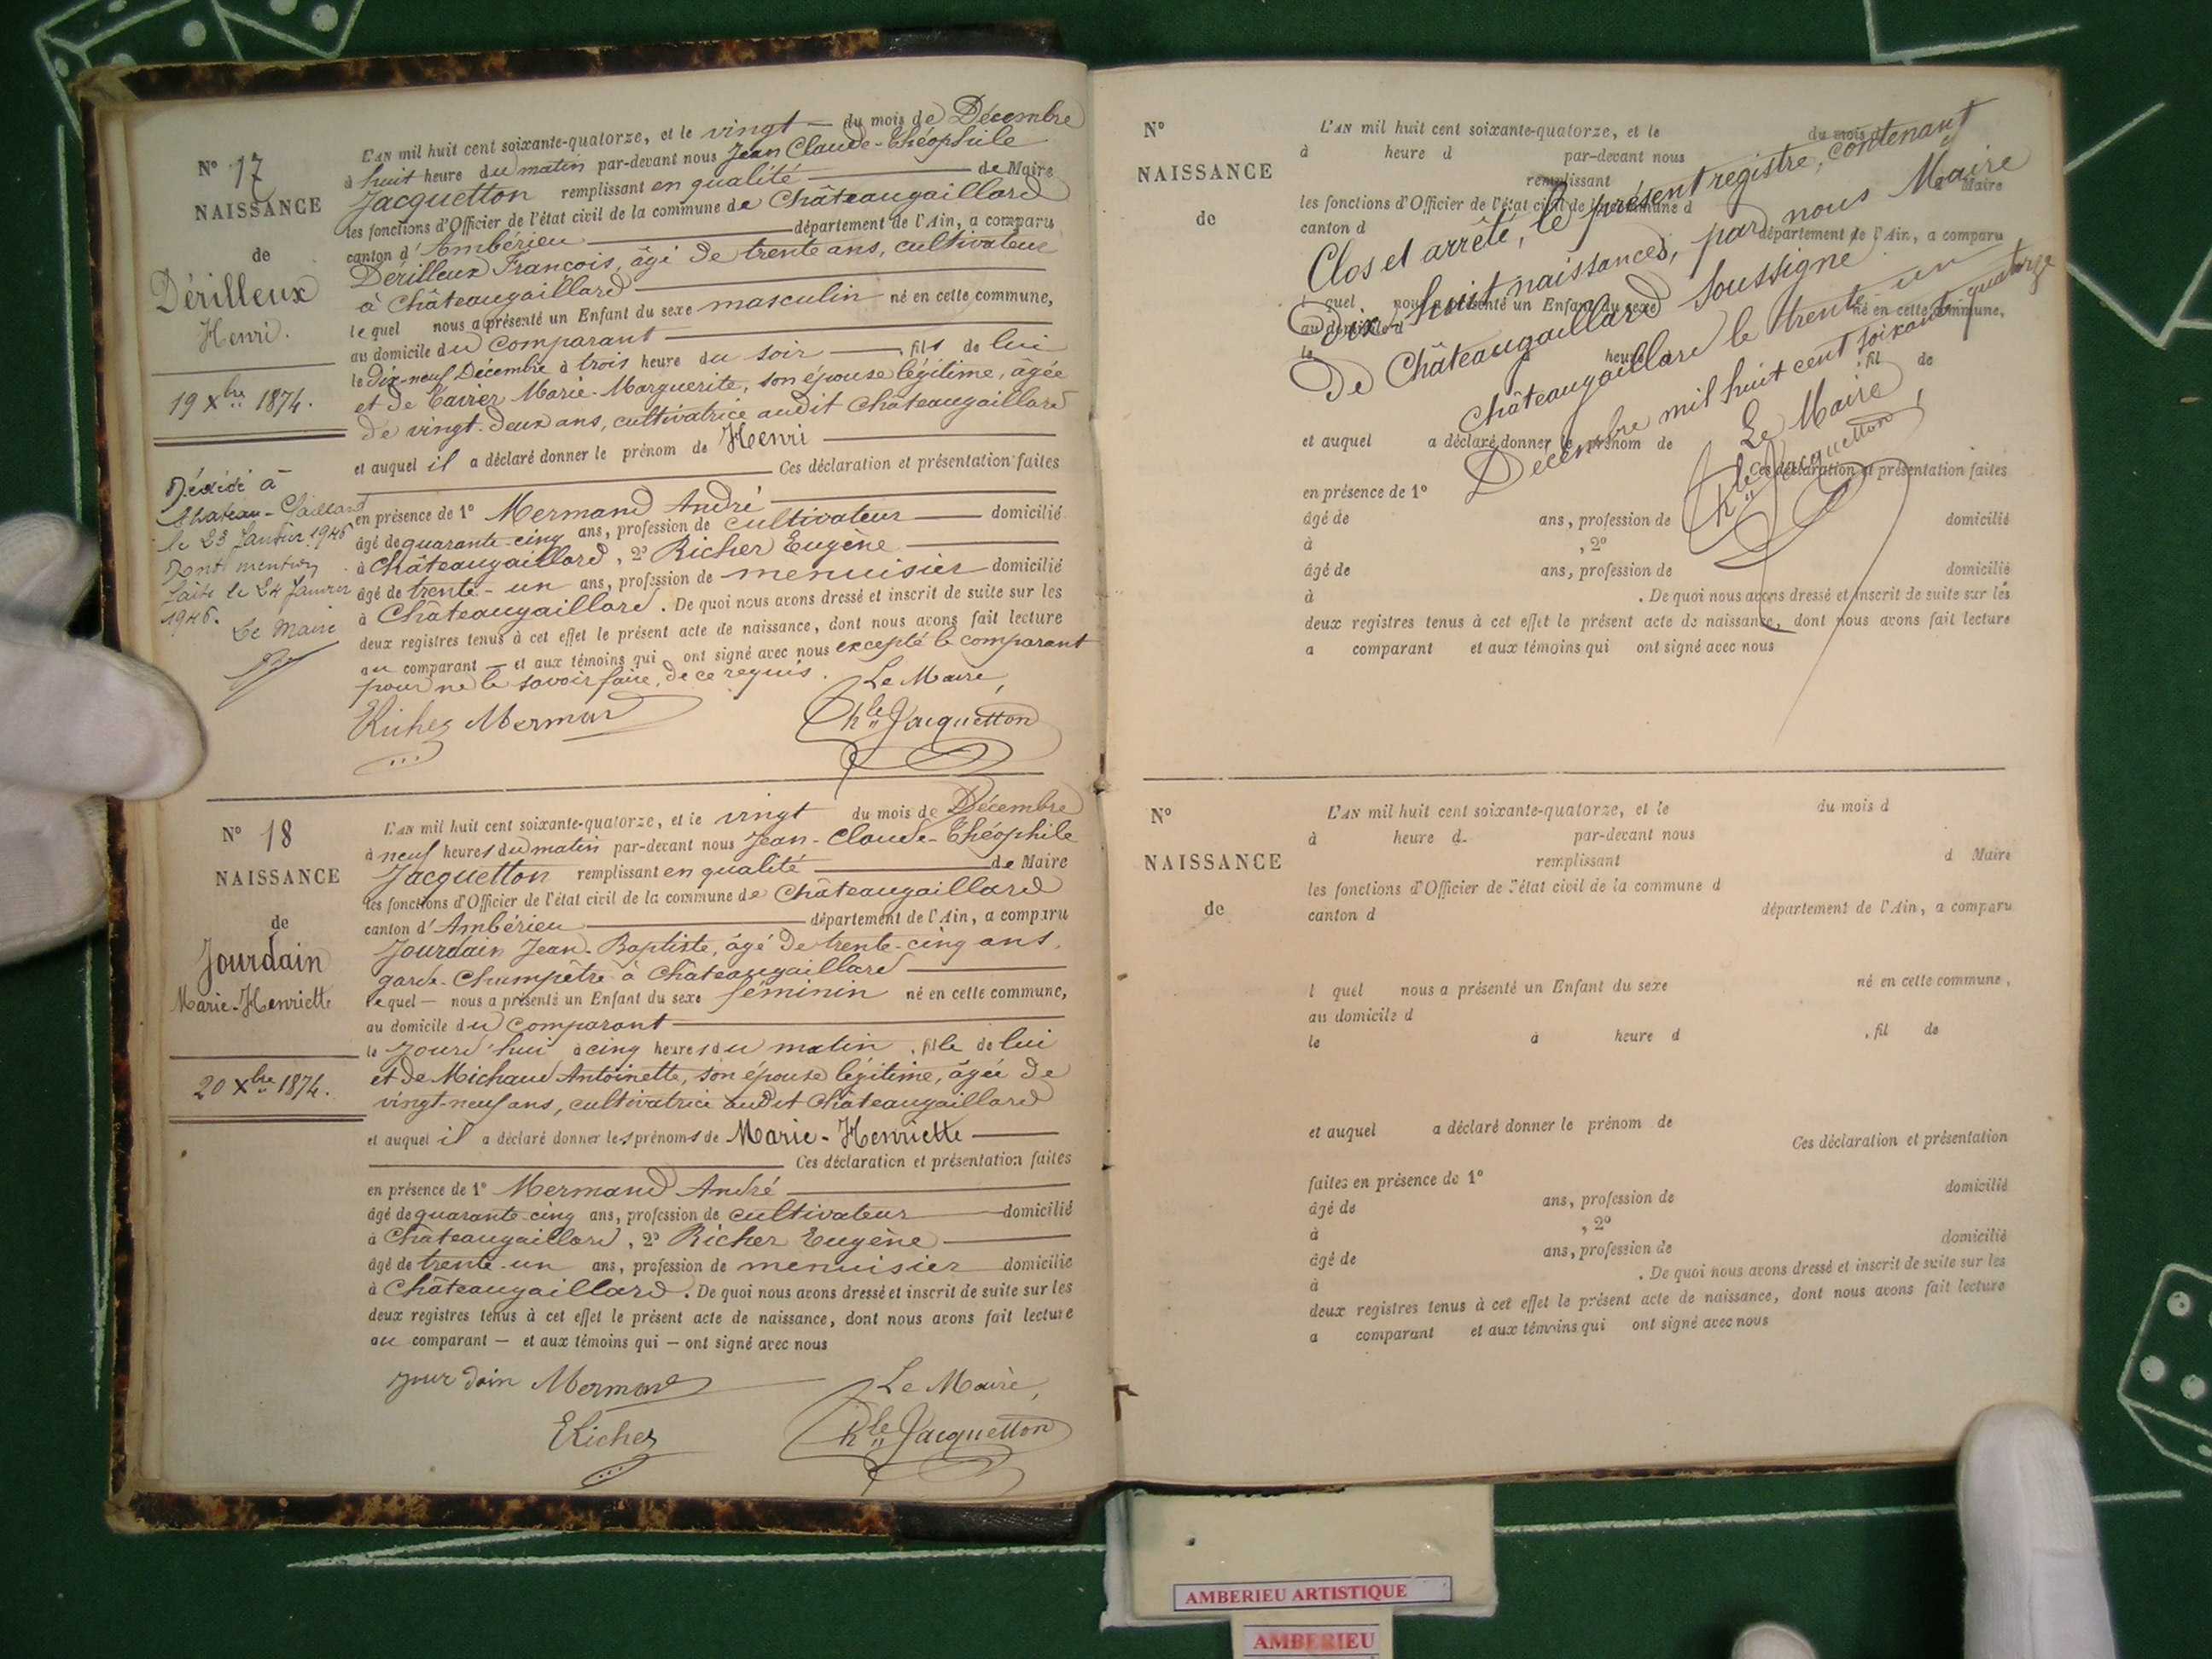 N° 17
NAISSANCE
de
Dérilleux
Henri.
19 Xbre 1874.
Décédé à
Chateau-Gaillard
le 23 Janvier 1946
Dont mention
faite le 24 Janvier
1946.
Le Maire
L'AN mil huit cent soixante-quatorze, et le vingt — du mois de Décembre
à huit heure du matin par-devant nous Jean Claude-Théophile
Jacquetton remplissant en qualité — de Maire
les fonctions d'Officier de l'état civil de la commune de Châteaugaillard
canton d'Ambérieu — département de l'Ain, a comparu
Dérilleux François, âgé de trente ans, cultivateur
à Châteaugaillard —
lequel nous a présenté un Enfant du sexe masculin né en cette commune,
au domicile du comparant —
le dix-neuf Décembre à trois heure du soir —, fils de lui
et de Marie-Marguerite, son épouse légitime, âgée
de vingt-deux ans, cultivatrice audit Châteaugaillard
et auquel il a déclaré donner le prénom de Henri —
— Ces déclaration et présentation faites
en présence de 1° Mermand André —
âgé de quarante-cinq ans, profession de cultivateur — domicilié
à Châteaugaillard, 2° Richer Eugène —
âgé de trente-un ans, profession de menuisier domicilié
à Châteaugaillard. De quoi nous avons dressé et inscrit de suite sur les
deux registres tenus à cet effet le présent acte de naissance, dont nous avons fait lecture
au comparant — et aux témoins qui ont signé avec nous excepté le comparant
pour ne le savoir faire, de ce requis. Le Maire,
Richer Mermand Thle Jacquetton
N° 18
NAISSANCE
de
Jourdain
Marie-Henriette
20 Xbre 1874.
L'AN mil huit cent soixante-quatorze, et le vingt du mois de Décembre
à neuf heures du matin par-devant nous Jean-Claude-Théophile
Jacquetton remplissant en qualité — de Maire
les fonctions d'Officier de l'état civil de la commune de Châteaugaillard
canton d'Ambérieu — département de l'Ain, a comparu
Jourdain Jean-Baptiste, âgé de trente-cinq ans,
garde-Champêtre à Châteaugaillard —
lequel — nous a présenté un Enfant du sexe féminin né en cette commune,
au domicile du comparant —
le Jourd'hui à cinq heures du matin, fille de lui
et de Michaud Antoinette, son épouse légitime, âgée de
vingt-neuf ans, cultivatrice audit Châteaugaillard
et auquel il a déclaré donner les prénoms de Marie-Henriette —
— Ces déclaration et présentation faites
en présence de 1° Mermand André —
âgé de quarante-cinq ans, profession de cultivateur — domicilié
à Châteaugaillard, 2° Richer Eugène —
âgé de trente-un ans, profession de menuisier domicilié
à Châteaugaillard. De quoi nous avons dressé et inscrit de suite sur les
deux registres tenus à cet effet le présent acte de naissance, dont nous avons fait lecture
au comparant — et aux témoins qui — ont signé avec nous
Jourdain Mermand Le Maire,
ERicher Thle Jacquetton
N°
NAISSANCE
de
L'AN mil huit cent soixante-quatorze, et le du mois d
à heure d par-devant nous
remplissant d Maire
les fonctions d'Officier de l'état civil de la commune d
canton d département de l'Ain, a comparu
l quel nous a présenté un Enfant du sexe né en cette commune,
au domicile d
le heure fil de
et auquel a déclaré donner le prénom de
Ces déclaration et présentation faites
en présence de 1°
âgé de ans, profession de domicilié
à , 2°
âgé de ans, profession de domicilié
à . De quoi nous avons dressé et inscrit de suite sur les
deux registres tenus à cet effet le présent acte de naissance, dont nous avons fait lecture
a comparant et aux témoins qui ont signé avec nous
Clos et arrêté, le présent registre, contenant
Dix-huit naissances, par nous Maire
De Châteaugaillard soussigné
Châteaugaillard le trente-un
Décembre mil huit cent soixante quatorze
Le Maire,
Thle Jacquetton
N°
NAISSANCE
de
L'AN mil huit cent soixante-quatorze, et le du mois d
à heure d. par-devant nous
remplissant d Maire
les fonctions d'Officier de l'état civil de la commune d
canton d département de l'Ain, a comparu
l quel nous a présenté un Enfant du sexe né en cette commune,
au domicile d
le à heure d , fil de
et auquel a déclaré donner le prénom de
Ces déclaration et présentation
faites en présence de 1°
âgé de ans, profession de domicilié
à , 2°
âgé de ans, profession de domicilié
à . De quoi nous avons dressé et inscrit de suite sur les
deux registres tenus à cet effet le présent acte de naissance, dont nous avons fait lecture
a comparant et aux témoins qui ont signé avec nous
AMBERIEU ARTISTIQUE
AMBERIEU